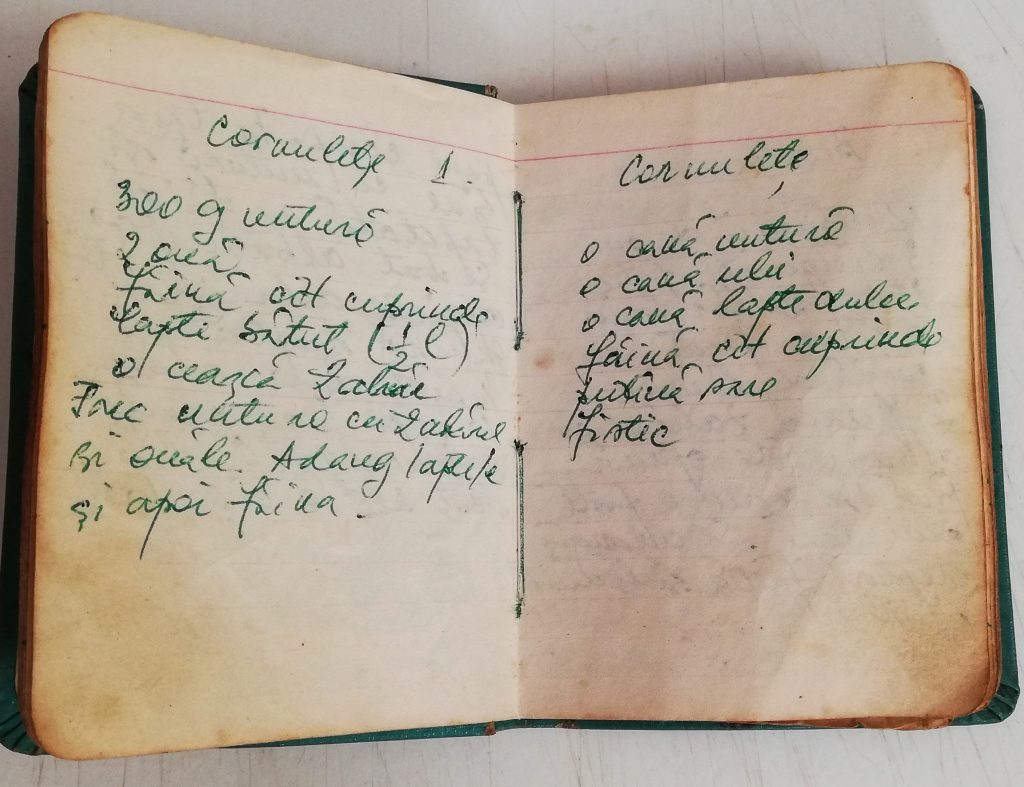 Cornulețe 1.
300 g untură
2 ouă
făină cît cuprinde
lapte bătut (1/2 l)
o ceașcă zahăr
Frec untura cu zahărul
și ouăle. Adaug laptele
și apoi făina.
Cornulețe
o cană untură
o cană ulei
o cană lapte dulce
făină cît cuprinde
puțină sare